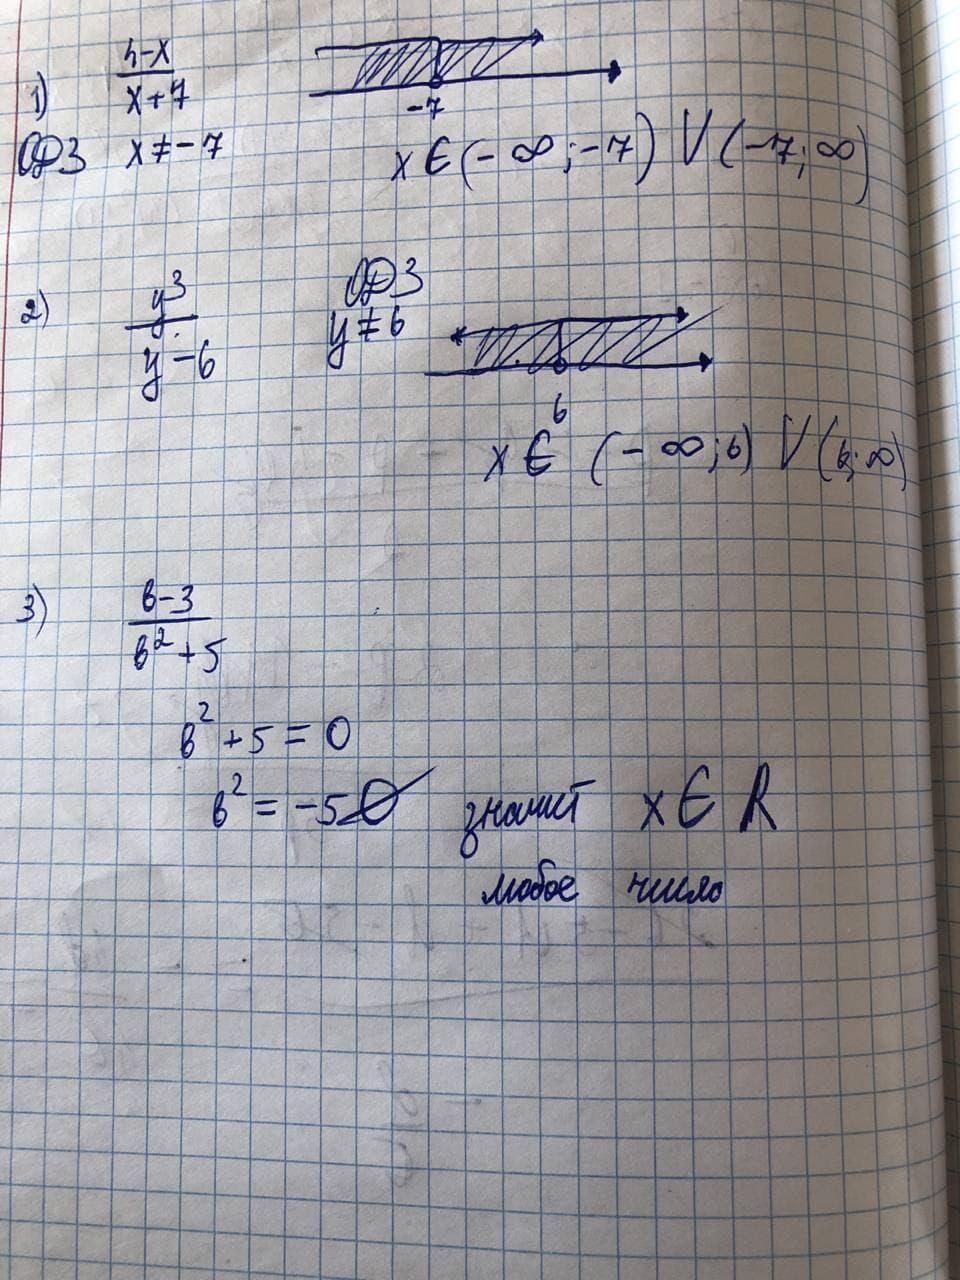 1) 4-x
x+7
-7
ОДЗ x≠-7
x∈(-∞;-7) V (-7;∞)
2) y³
y-6
ОДЗ
y≠6
6
x∈ (-∞;6) V (6;∞)
3) в-3
в²+5
в²+5=0
в²=-5 ∅ значит x∈R
любое число